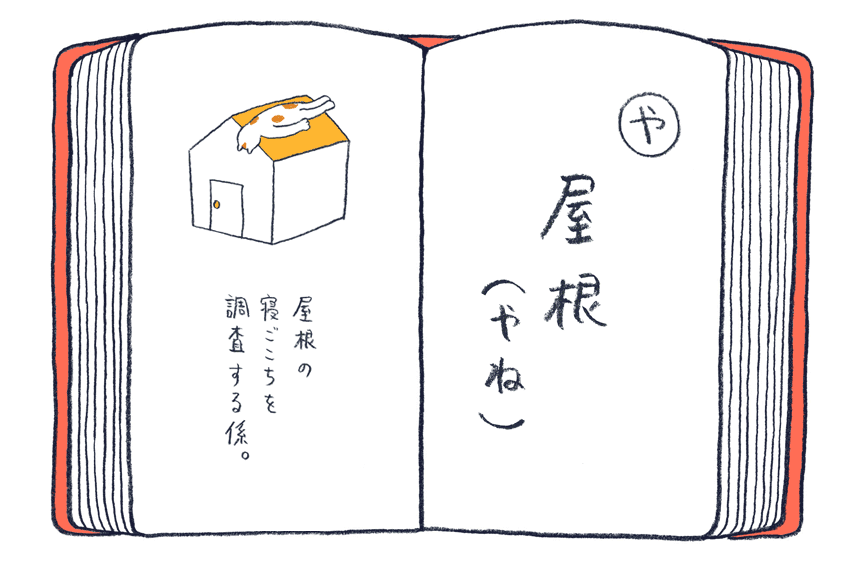 や
屋根
(やね)
屋根の
寝ごこちを
調査する係。